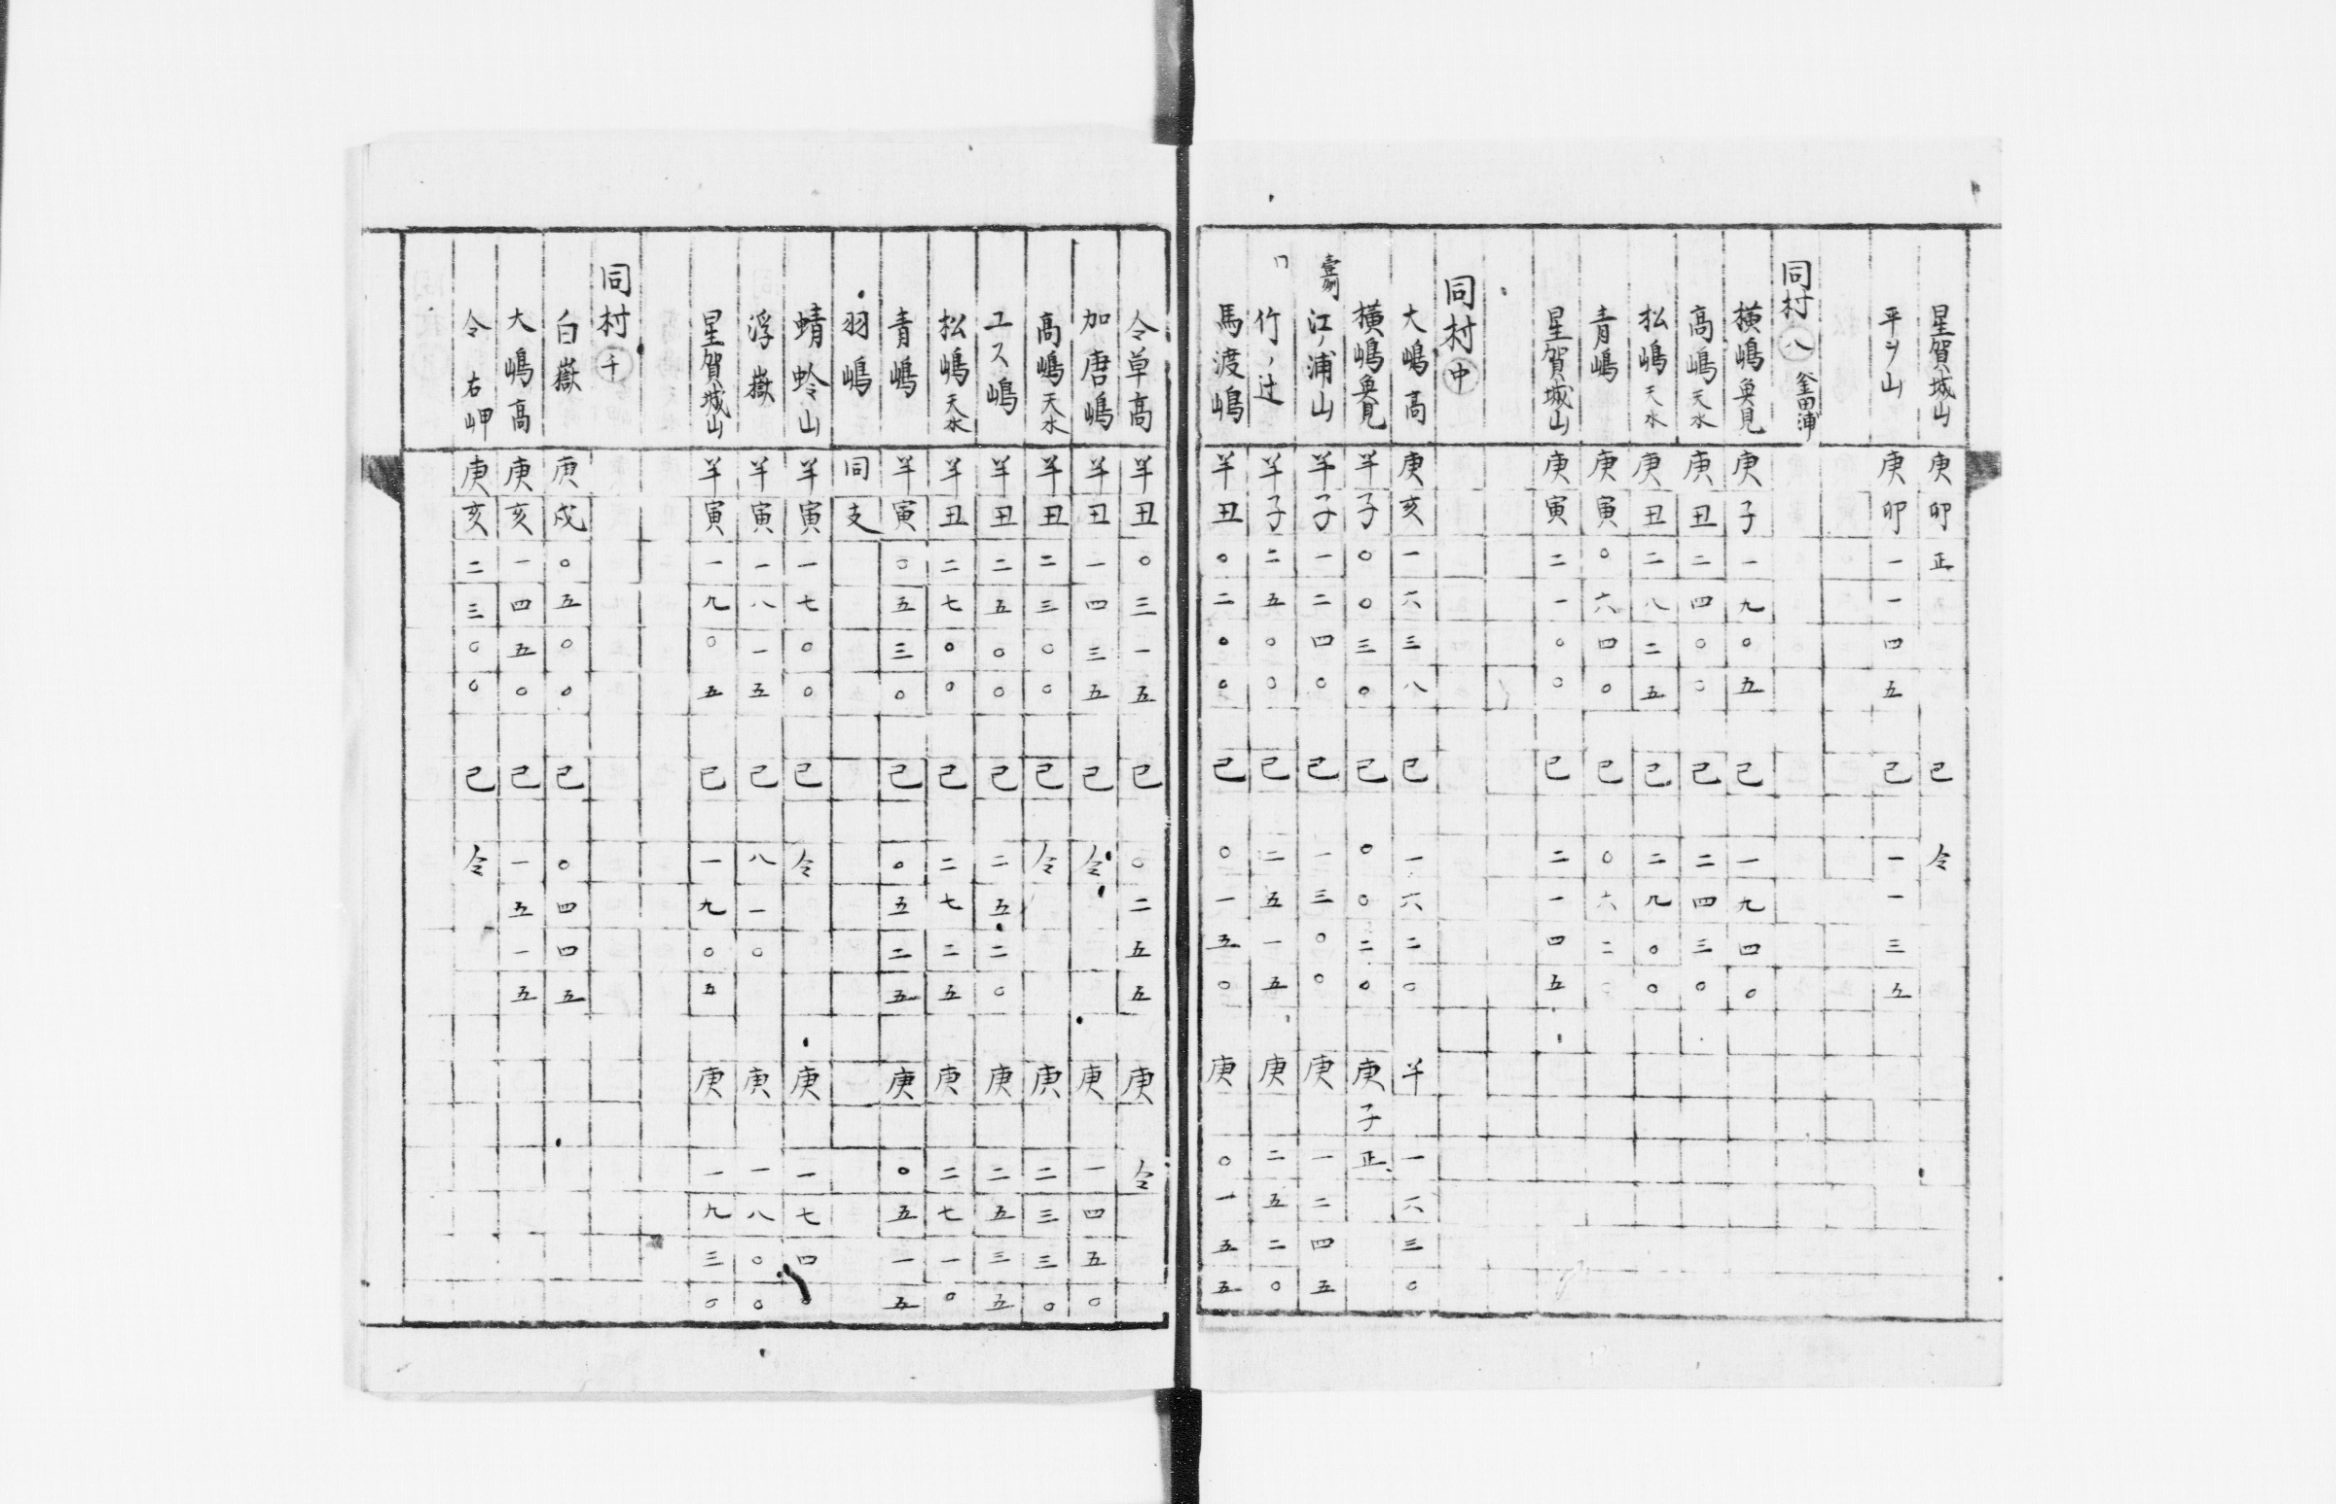 星賀城山 庚卯正 己 令
平ソ山 庚卯一一四五 己 一一三五
同村 八 釜田浦
横嶋奥見 庚子一九〇五 己 一九四〇
高嶋天水 庚丑二四〇〇 己 二四三〇
松嶋天水 庚丑二八二五 己 二九〇〇
青嶋 庚寅〇六四〇 己 〇六二〇
星賀城山 庚寅二一〇〇 己 二一四五
同村 中
大嶋高 庚亥一六三八 己 一六二〇 羊 一六三〇
横嶋奥見 羊子〇〇三〇 己 〇〇二〇 庚子正
江ノ浦山 羊子一二四〇 己 一三〇〇 庚 一二四五
竹ノ辻 羊子二五〇〇 己 二五一五 庚 二五二〇
馬渡嶋 羊丑〇二〇〇 己 〇一五〇 庚 〇一五五
令草高 羊丑〇三一五 己 〇二五五 庚 令
加唐嶋 羊丑一四三五 己 令 庚 一四五〇
高嶋天水 羊丑二三〇〇 己 令 庚 二三三〇
ユス嶋 羊丑二五〇〇 己 二五二〇 庚 二五三五
松嶋天水 羊丑二七〇〇 己 二七二五 庚 二七一〇
青嶋 羊寅〇五三〇 己 〇五二五 庚 〇五一五
羽嶋 同支
蜻蛉山 羊寅一七〇〇 己 令 庚 一七四〇
浮嶽 羊寅一八一五 己 八一〇 庚 一八〇〇
星賀城山 羊寅一九〇五 己 一九〇五 庚 一九三〇
同村 千
白嶽 庚戌〇五〇〇 己 〇四四五
大嶋高 庚亥一四五〇 己 一五一五
令 右岬 庚亥二三〇〇 己 令